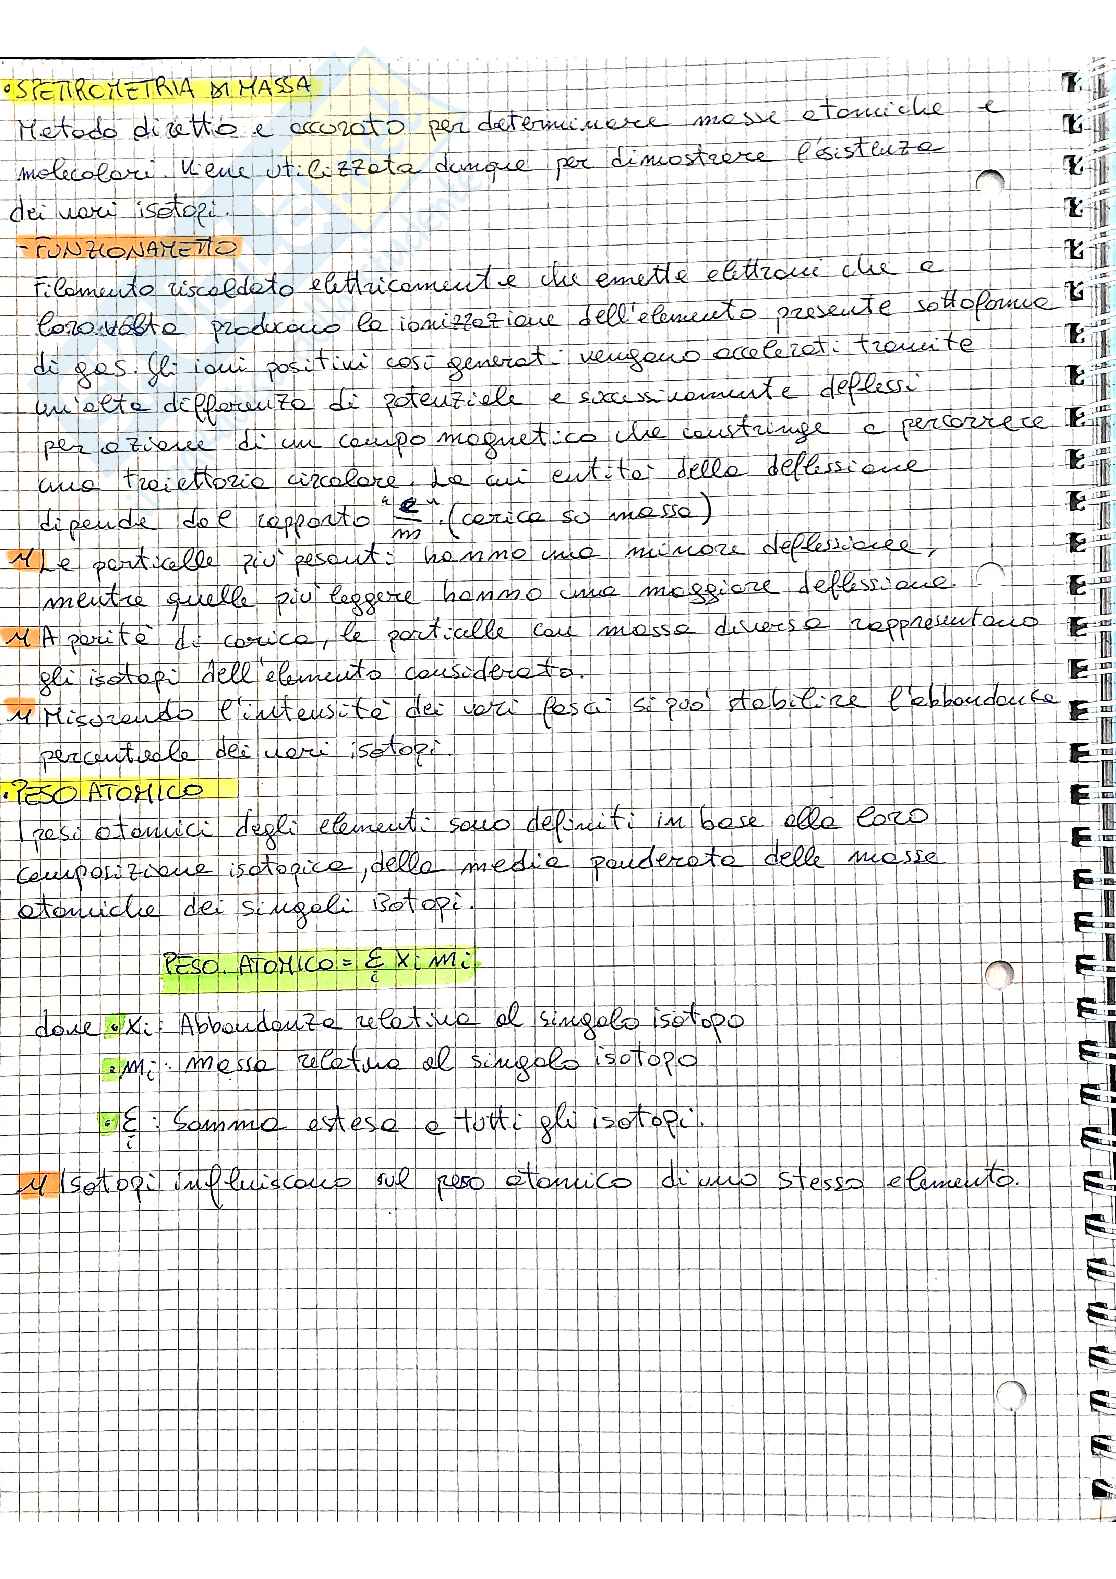 • SPETTROMETRIA DI MASSA
Metodo diretto e accurato per determinare masse atomiche e
molecolari. Viene utilizzata dunque per dimostrare l'esistenza
dei vari isotopi.
- FUNZIONAMETTO
Filamento riscaldato elettricamente che emette elettroni che a
loro volta producono la ionizzazione dell'elemento presente sottoforma
di gas. Gli ioni positivi così generati vengono accelerati tramite
un'alta differenza di potenziale e successivamente deflessi
per azione di un campo magnetico che constringe a percorrere
una traiettoria circolare. La cui entità della deflessione
dipende dal rapporto "e/m". (carica su massa)
Le particelle più pesanti hanno una minore deflessione,
mentre quelle più leggere hanno una maggiore deflessione.
A parità di carica, le particelle con massa diversa rappresentano
gli isotopi dell'elemento considerato.
Misurando l'intensità dei vari fasci si può stabilire l'abbondanza
percentuale dei vari isotopi.
• PESO ATOMICO
I pesi atomici degli elementi sono definiti in base alla loro
composizione isotopica, dalla media ponderata delle masse
atomiche dei singoli isotopi.
PESO ATOMICO = Σi Xi Mi
dove • Xi: Abbondanza relativa al singolo isotopo
• Mi: massa relativa al singolo isotopo
• Σi: Somma estesa a tutti gli isotopi.
Isotopi influiscono sul peso atomico di uno stesso elemento.